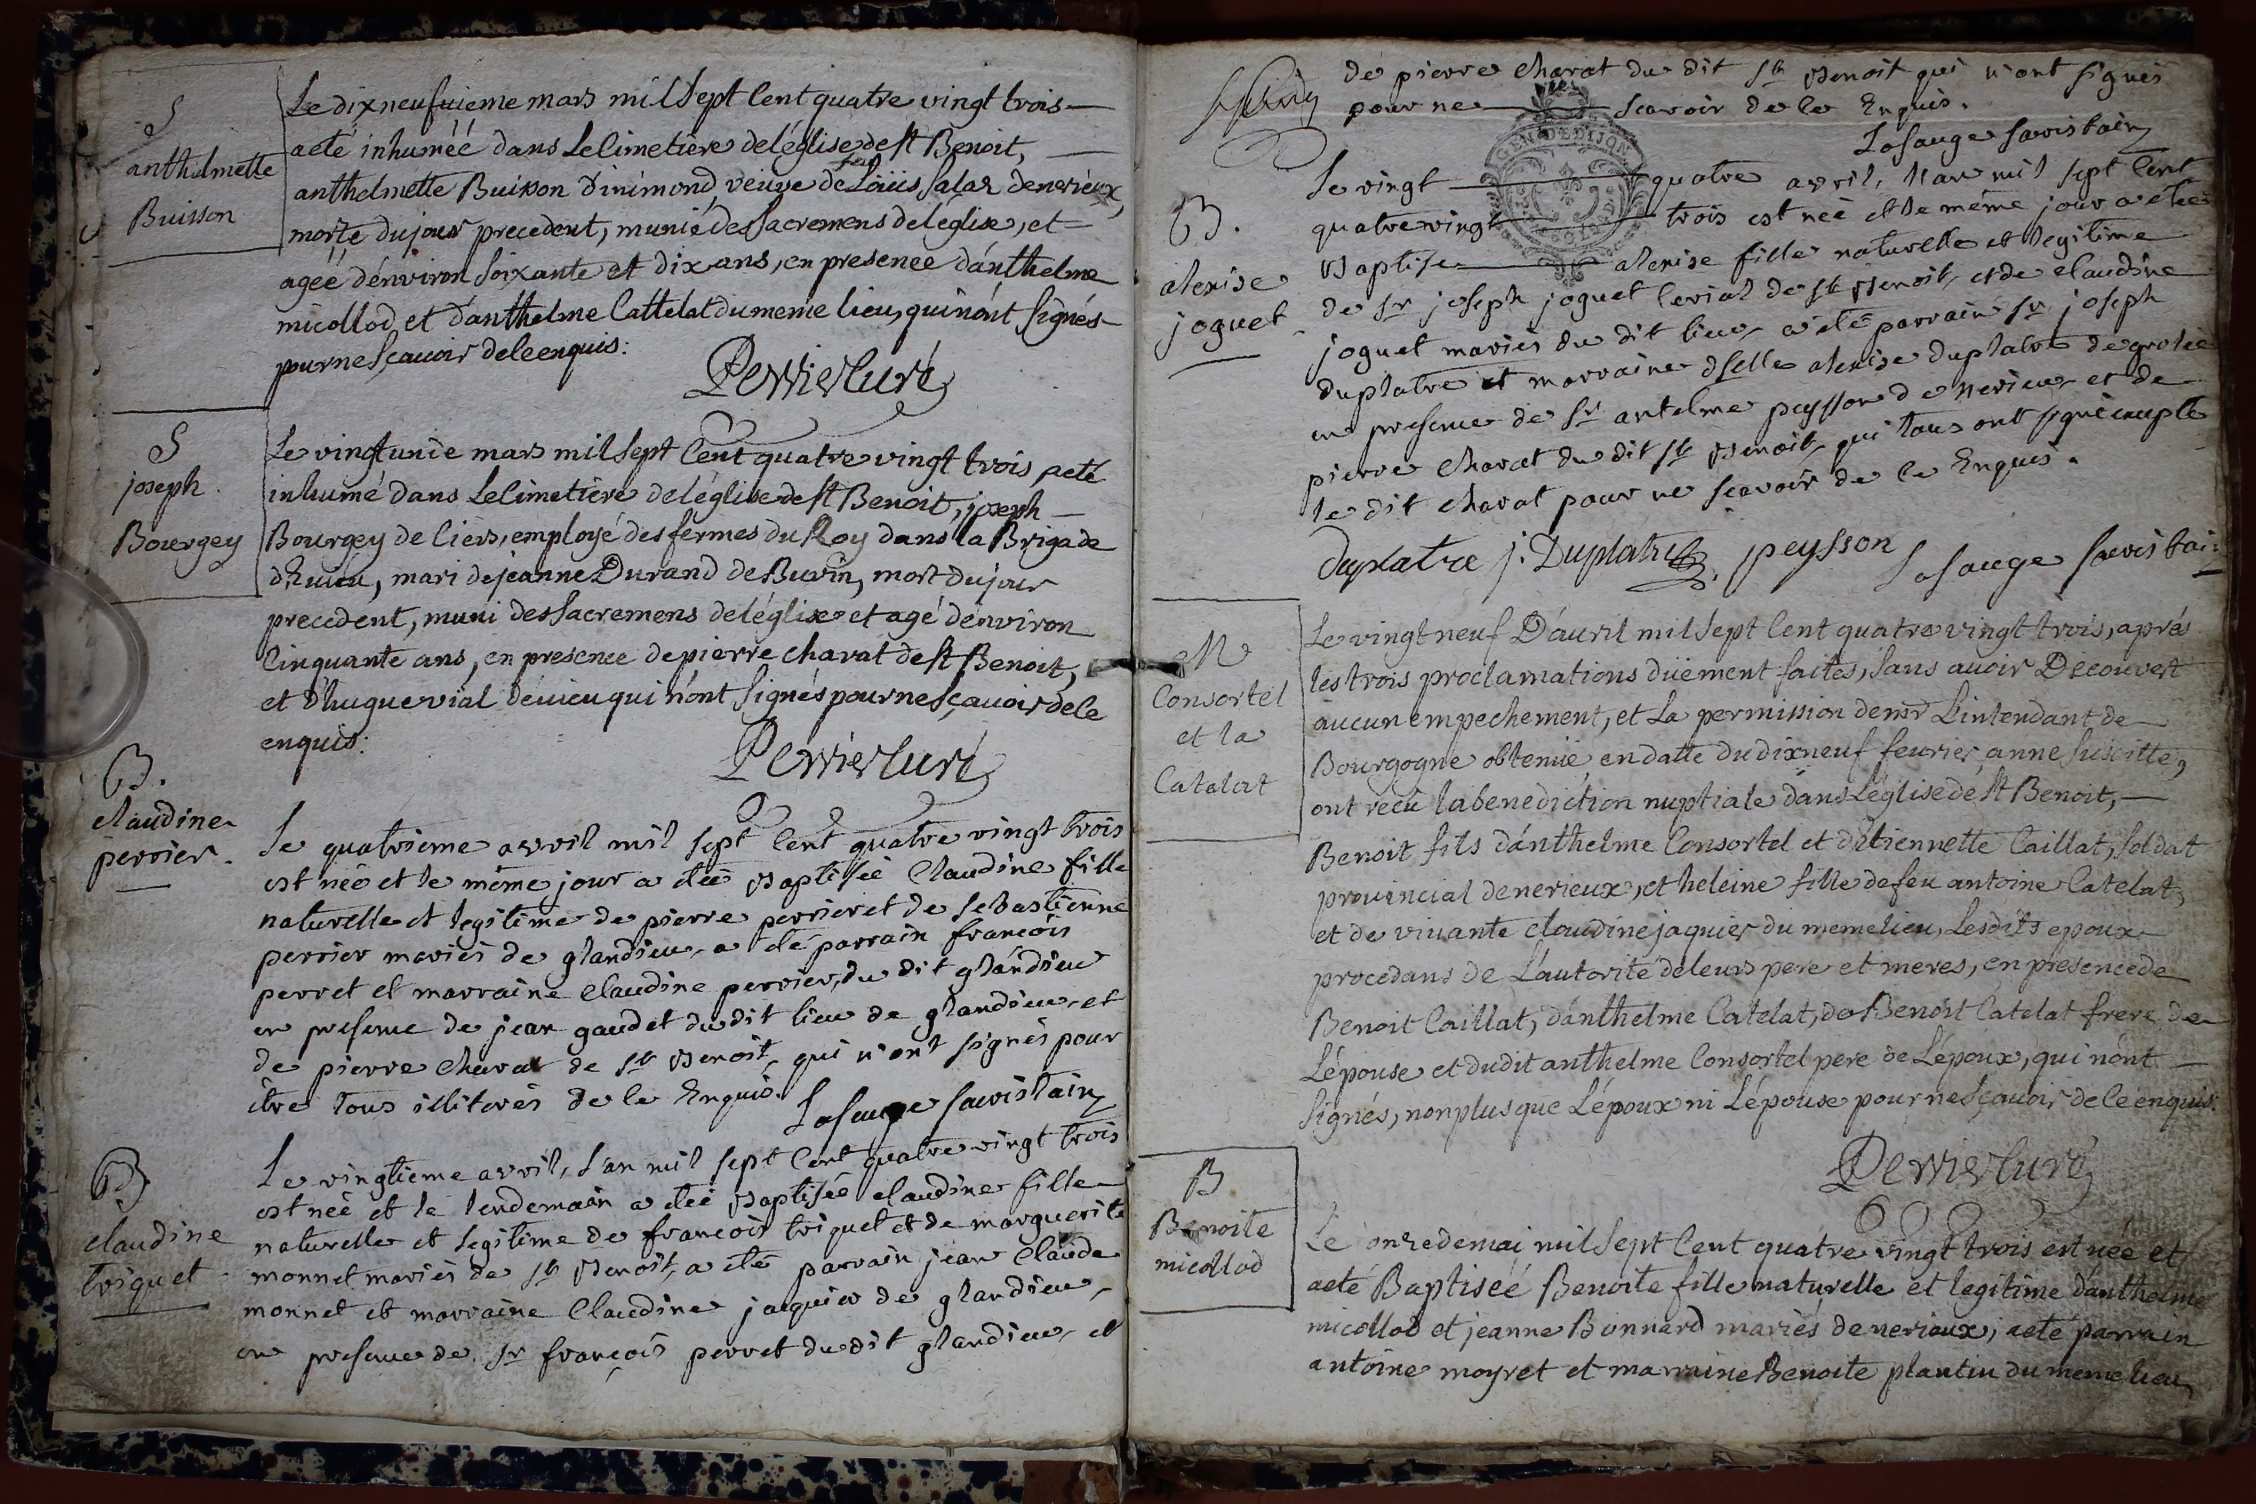 S
anthelmette
Buisson
Le dixneufuieme mars mil Sept Cent quatre vingt trois
a eté inhuméé dans Le Cimetiere de léglise de st Benoit,
anthelmette Buisson d'inimond, veuve de feu Loüis Salaz de nerieux,
morte du jour precedent, munie des Sacremens de léglise, et
ageé d'enviroñ Soixante et dix ans, en presence d'anthelme
micollod et d'anthelme Cattelat du meme lieu, qui n'ont Signés
pour ne Sçauoir de le enquis:
Perrier Curé
S
joseph
Bourgey
Le vingt unie mars mil Sept Cent quatre vingt trois a eté
inhumé dans Le Cimetiere de léglise de st Benoit, joseph
Bourgey de Ciers, employé des fermes du Roy dans la Brigade
d'Euieu, mari de jeanne Durand de Buvin, mort du jour
precedent, muni des Sacremens de léglise et agé d'environ
Cinquante ans, en presence de pierre charat de st Benoit,
et d'hugue vial d'euieu qui n'ont Signés pour ne Sçauoir de le
enquis:
Perrier Curé
B.
claudine
perrier
Le quatrieme avril mil sept Cent quatre vingt trois
est née et le même jour a eteé Baptisée Claudine fille
naturelle et legitime de pierre perrier et de sebastienne
perrier mariés de glandieu, a eté parrain françois
perret et marraine Claudine perrier, du dit glandieu
en presence de jean gaudet du dit lieu de glandieu et
de pierre charat de st Benoit, qui n'ont signés pour
être tous illiterés de ce Enquis.
Lasauge sacristain
B
claudine
triquet
Le vingtieme avril, L'an mil sept Cent quatre vingt trois
est née et le lendemain a eteé Baptisée claudine fille
naturelle et legitime de françois triquet et de marguerite
monnet mariés de st Benoit, a eté parrain jean Claude
monnet et marraine Claudine jaquier de glandieu,
en presence de Sr françois perret du dit glandieu, et
de pierre charat du dit st Benoit qui n'ont signés
pour ne scavoir de ce Enquis.
Lasauge sacristain
GEN. DE DIJON
B.
alexise
joguet
Le vingt quatre avril, l'an mil sept Cent
quatre vingt trois est née et le même jour a eteé
Baptisé alexise fille naturelle et legitime
de Sr joseph joguet Cerial de st Benoit, et de claudine
joguet mariés du dit lieu, a eté parrain Sr joseph
duplatre et marraine dselle alexise duplatre de grolée
en presence de Sr antelme peysson de nerieu, et de
pierre charat du dit st Benoit, qui tous ont signé excepté
le dit charat pour ne scavoir de ce Enquis.
duplatre j. Duplatre peysson Lasauge sacristain
M
Consortel
et la
Catelat
Le vingt neuf D'auril mil Sept Cent quatre vingt trois, aprés
les trois proclamations düement faites, Sans auoir Decouvert
aucun empechement, et La permission de mr L'intendant de
Bourgogne obtenüe en datte du dixneuf feurier anne Suscitte,
ont recu la benediction nuptiale dans L'église de st Benoit,
Benoit fils d'anthelme Consortel et d'etiennette Caillat, Soldat
prouincial de nerieux, et heleine fille de feu antoine Catelat,
et de viuante claudine jaquier du meme lieu, Lesdits epoux
procedans de L'autorité de leurs pere et meres, en presence de
Benoit Caillat, d'anthelme Catelat, de Benoit Catelat frere de
L'épouse et dudit anthelme Consortel pere de L'époux, qui n'ont
Signés, non plus que L'époux ni L'épouse pour ne Sçauoir de ce enquis.
Perrier Curé
B
Benoite
micollod
Le onze de mai mil Sept Cent quatre vingt trois est née et
a eté Baptiseé Benoite fille naturelle et legitime d'anthelme
micollod et jeanne Bonnard mariés de nerieux, a eté parrain
antoine moyret et marraine Benoite plantin du meme lieu,